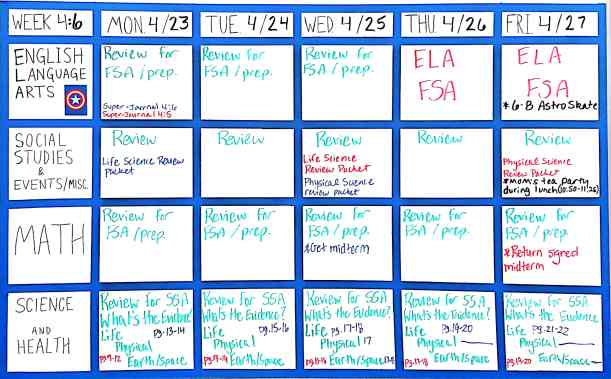 WEEK 4:6
MON. 4/23
TUE. 4/24
WED 4/25
THU. 4/26
FRI. 4/27
ENGLISH
LANGUAGE
ARTS
Review for
FSA/prep.
Super-Journal 4:6
Super-Journal 4:5
Review for
FSA/prep.
Review for
FSA/prep.
ELA
FSA
ELA
FSA
*6-8 AstroSkate
SOCIAL
STUDIES
&
EVENTS/MISC.
Review
Life Science Review
Packet
Review
Review
Life Science
Review Packet
Physical Science
review packet
Review
Review
Physical Science
Review Packet
*Mom's tea Party
during lunch(10:50-11:25)
MATH
Review for
FSA/prep.
Review for
FSA/prep.
Review for
FSA/prep.
*Get midterm
Review for
FSA/prep.
Review for
FSA/prep.
*Return signed
midterm
SCIENCE
AND
HEALTH
Review for SSA
What's the Evidence?
Life pg.13-14
Physical
Earth/Space
Review for SSA
What's the Evidence?
Life pg.15-16
Physical
Earth/Space
Review for SSA
What's the Evidence?
Life pg.17-18
Physical 17
Earth/Space
Review for SSA
What's the Evidence?
Life pg.19-20
Physical
Earth/Space
Review for SSA
What's the Evidence?
Life pg.21-22
Physical
Earth/Space